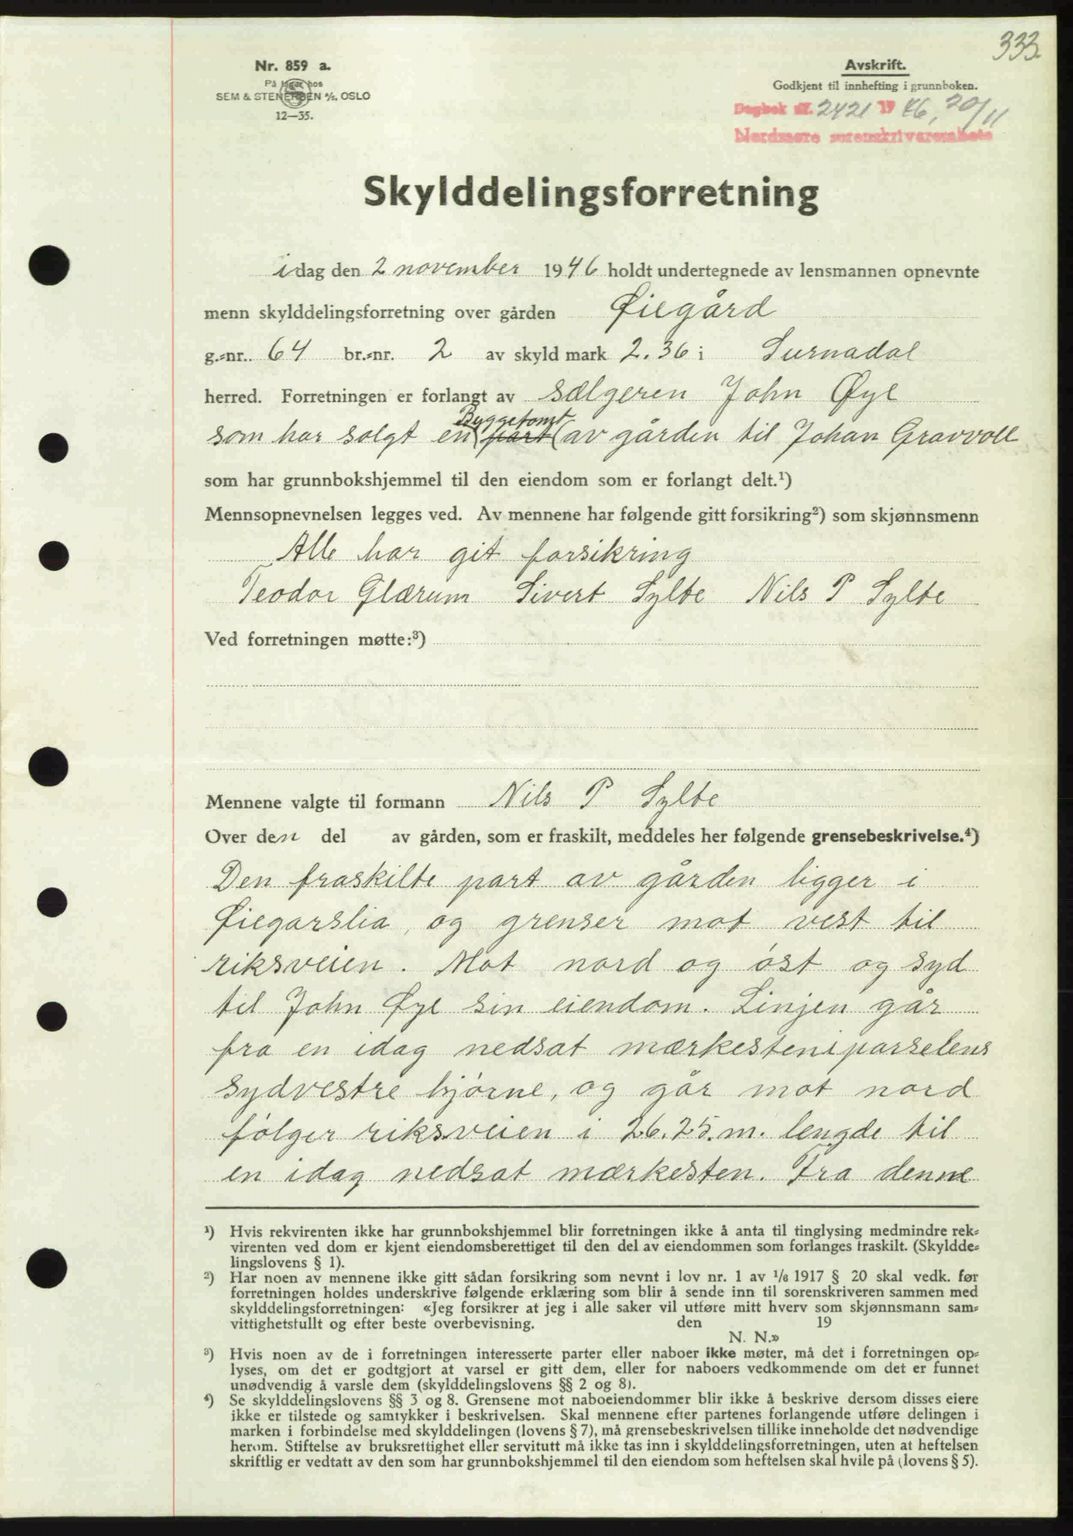 333.
Nr. 859 a.
På lager hos
SEM & STENERSEN A/S, OSLO
12—35.
Avskrift.
Godkjent til innhefting i grunnboken.
Dagbok nr. 2421 19 46, 20/11
Nordmøre sorenskriverembete
Skylddelingsforretning
idag den 2 november 1946 holdt undertegnede av lensmannen opnevnte
menn skylddelingsforretning over gården Øiegård
g.-nr. 64 br.-nr. 2 av skyld mark 2.36 i Surnadal
herred. Forretningen er forlangt av sælgeren John Øye
Byggetomt
som har solgt en (part( av gården til Johan Gravvoll
som har grunnbokshjemmel til den eiendom som er forlangt delt.¹)
Mennsopnevnelsen legges ved. Av mennene har følgende gitt forsikring²) som skjønnsmenn
Alle har git forsikring
Teodor Glærum Sivert Sylte Nils P Sylte
Ved forretningen møtte:³)
Mennene valgte til formann Nils P Sylte
Over den del av gården, som er fraskilt, meddeles her følgende grensebeskrivelse.⁴)
Den fraskilte part av gården ligger i
Øiegarslia, og grenser mot vest til
riksveien. Mot nord og øst og syd
til John Øye sin eiendom. Linjen går
fra en idag nedsat mærkesten i parselens
sydvestre hjørne, og går mot nord
følger riksveien i 26.25.m. lengde til
en idag nedsat mærkesten. Fra denne
¹) Hvis rekvirenten ikke har grunnbokshjemmel blir forretningen ikke å anta til tinglysing medmindre rek-
virenten ved dom er kjent eiendomsberettiget til den del av eiendommen som forlanges fraskilt. (Skyldde-
lingslovens § 1).
²) Har noen av mennene ikke gitt sådan forsikring som nevnt i lov nr. 1 av 1/6 1917 § 20 skal vedk. før
forretningen holdes underskrive følgende erklæring som blir å sende inn til sorenskriveren sammen med
skylddelingsforretningen: «Jeg forsikrer at jeg i alle saker vil utføre mitt hverv som skjønnsmann sam-
vittighetsfullt og efter beste overbevisning. den 19
N. N.»
³) Hvis noen av de i forretningen interesserte parter eller naboer ikke møter, må det i forretningen op-
lyses, om det er godtgjort at varsel er gitt dem, eller for naboers vedkommende om det er funnet
unødvendig å varsle dem (skylddelingslovens §§ 2 og 8).
⁴) Se skylddelingslovens §§ 3 og 8. Grensene mot naboeiendommer blir ikke å beskrive dersom disses eiere
ikke er tilstede og samtykker i beskrivelsen. Skal mennene efter partenes forlangende utføre delingen i
marken i forbindelse med skylddelingen (lovens § 7), må grensebeskrivelsen tillike inneholde det nødvendige
herom. Stiftelse av bruksrettighet eller servitutt må ikke tas inn i skylddelingsforretningen, uten at heftelsen
skriftlig er vedtatt av den som har grunnbokshjemmel til den eiendom som heftelsen skal hvile på (lovens § 5).